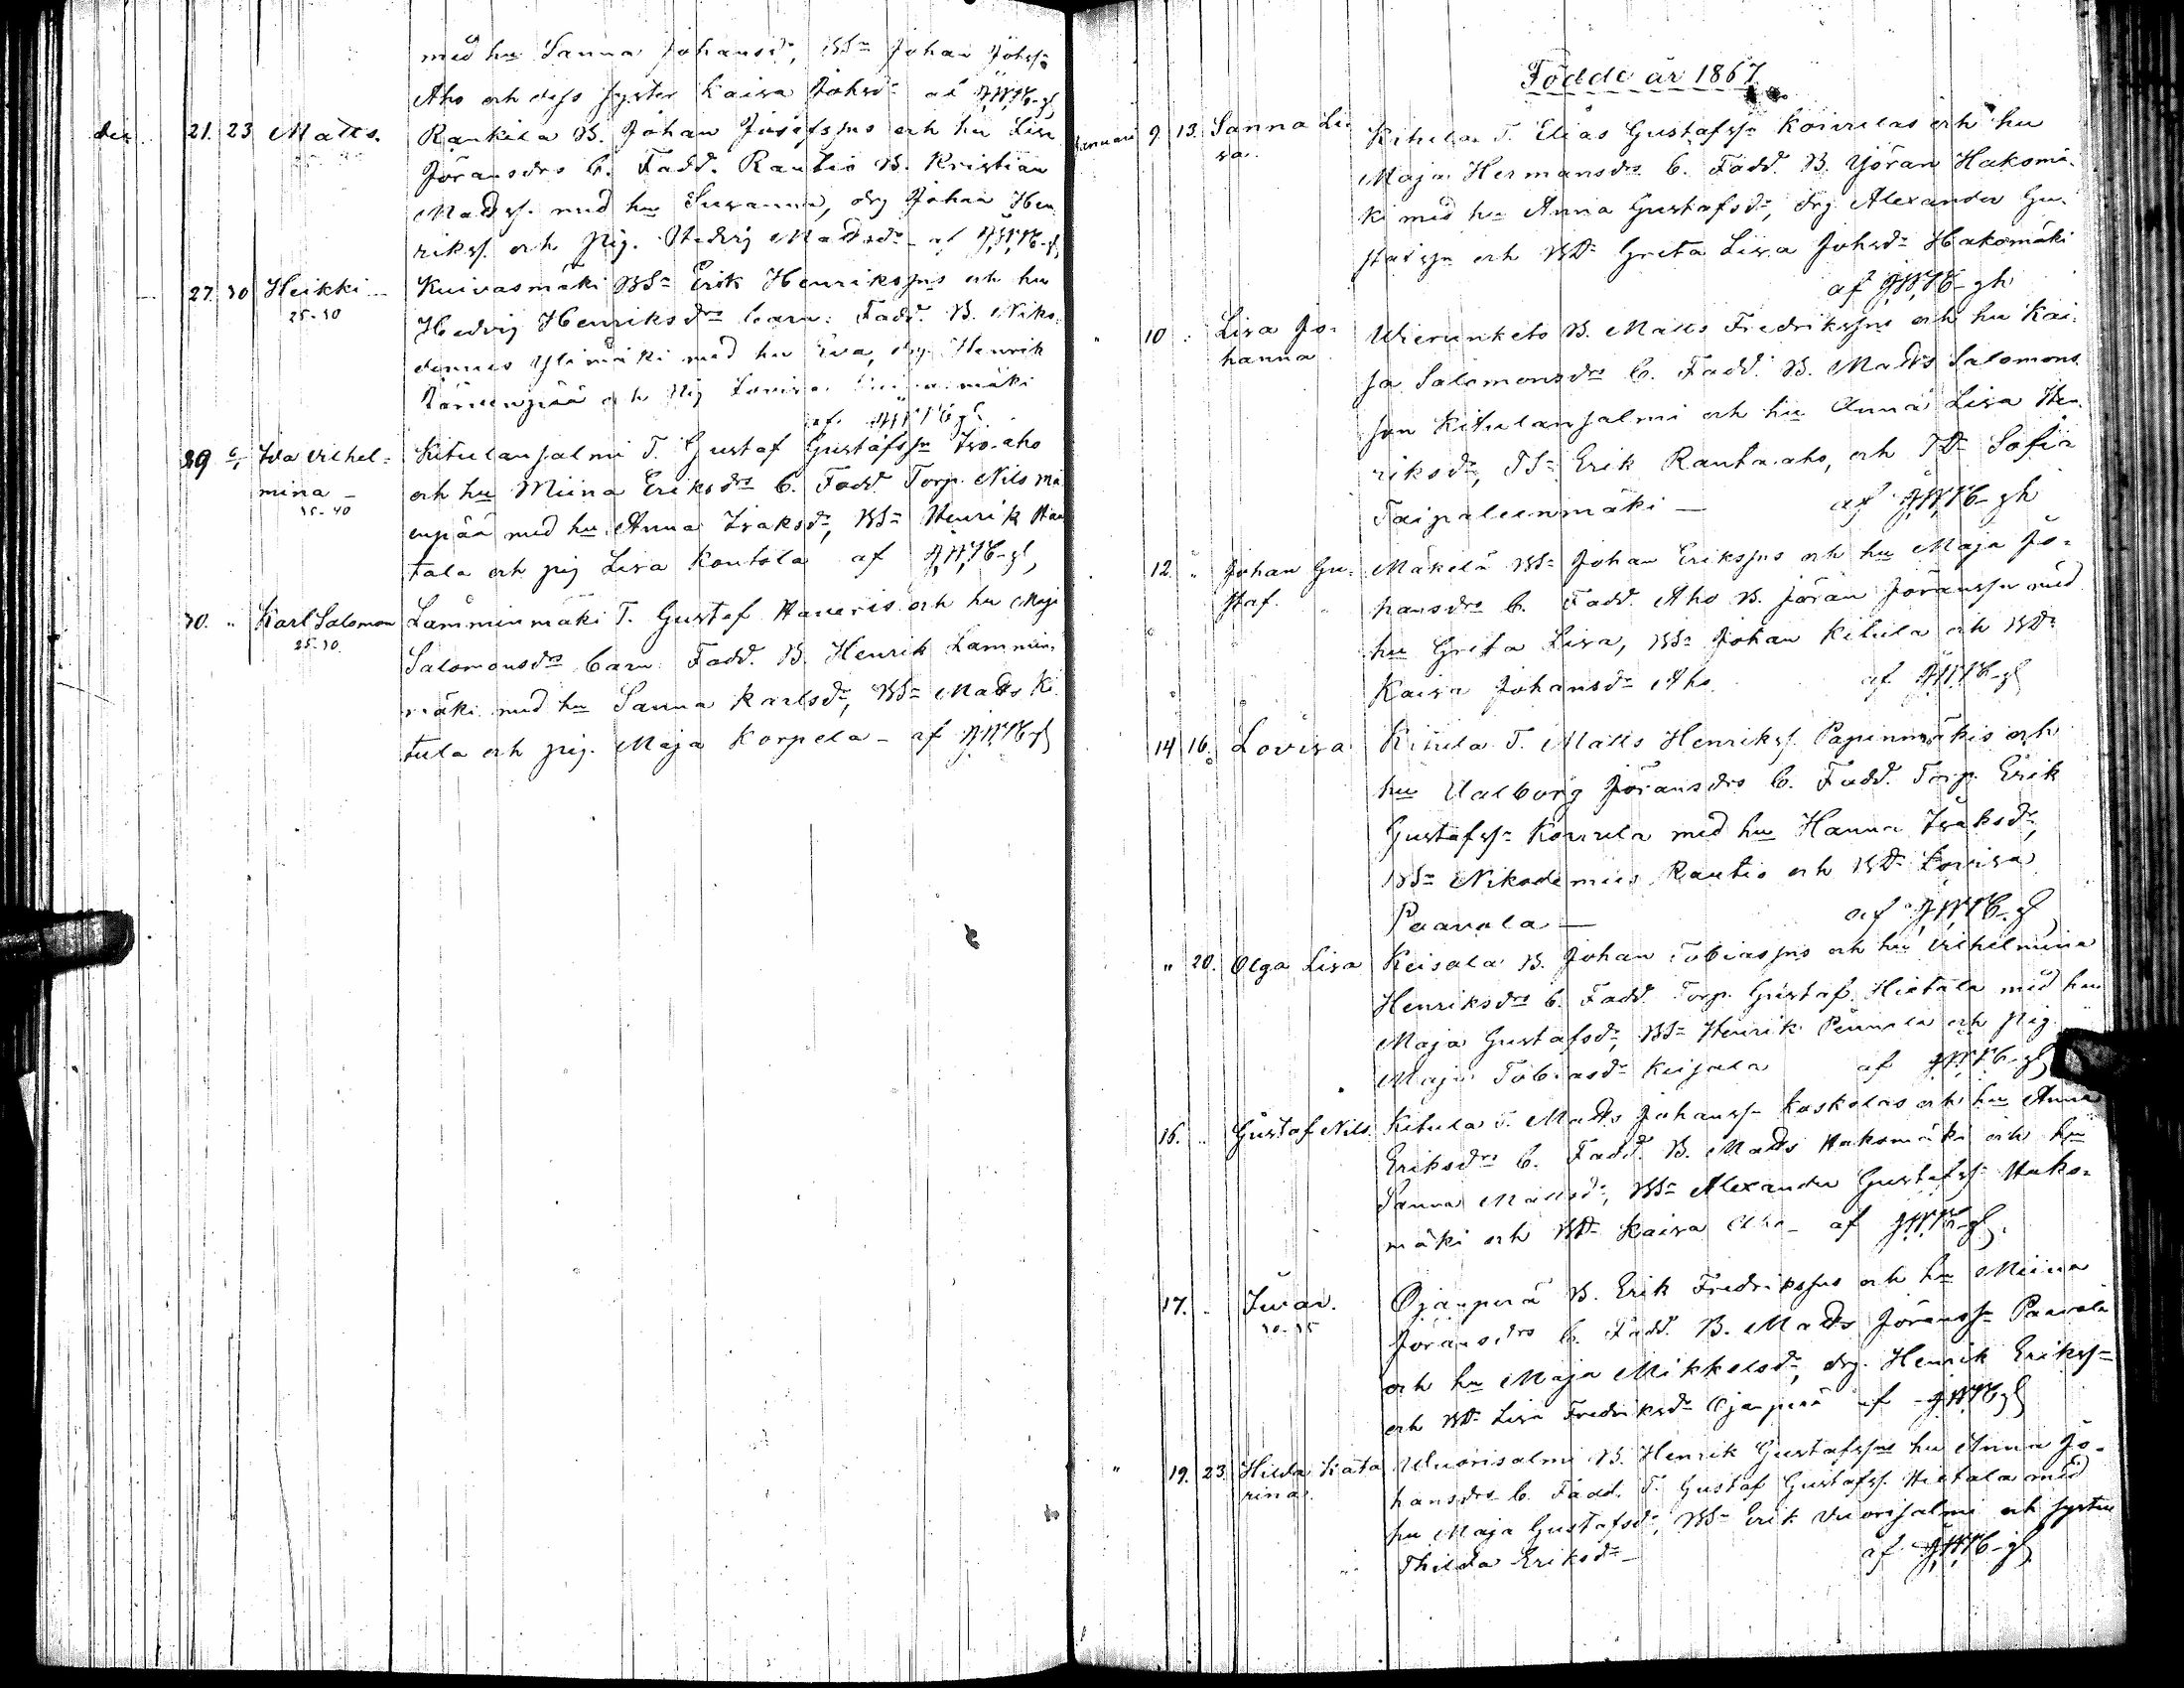 med hu Sanna Johansdr, BSn Johan Johss
Aho och dess syster Kaisa Johsdr af
dec 21. 23 Matts. Rankila B. Johan Josefssns och hu Lisa
Jöransdrs b. Fadd. Rautio B. Kristian
Madss. med hu Susanna, drg Johan Hen
rikss. och pig. Hedvig Madsdr af
27. 30 Heikki Kuivasmäki BSn Erik Henrikssns och hu
25-30 Hedvig Henriksdrs barn: Fadd. B. Niko
demus Ylimäki med hu Eva, drg Henrik
och pig Lovisa mäki
af
29 Ida Vilhel= Kitulansalmi T. Gustaf Gustafssn Iso-aho
mina och hu Miina Eriksdrs b. Fadd. Torp. Nils Mä
35-40 enpää med hu Anna Isaksdr, BSn Henrik
tala och pig Lisa Kontola af
30. " Karl Salomon Lamminmäki T. Gustaf Haveris och hu Maja
25-30. Salomonsdrs barn: Fadd. B. Henrik Lammin
mäki med hu Sanna Karlsdr, BSn Mads Ki
tula och pig. Maja Korpela - af
Födde år 1867
Januari 9. 13. Sanna Li Kitula T. Elias Gustafssn Koivulas och hu
sa. Maja Hermansdrs b. Fadd. B. Jöran Hakomä
ki med hu Anna Gustafsdr, drg Alexander Gu
stafssn och BDr Greta Lisa Johsdr Hakomäki
af
" 10 " Lisa Jo- B. Matts Fredrikssns och hu Kai
hanna sa Salomonsdrs b. Fadd. B. Mads Salomons
son Kitulansalmi och hu Anna Lisa Hen
riksdr, TSn Erik Rauta-aho, och TDr Sofia
Taipaleenmäki — af
12. " Johan Gu= Mäkelä BSn Johan Erikssns och hu Maja Jo=
staf. hansdrs b. Fadd. Aho B. Jöran Jöranssn med
hu Greta Lisa, BSn Johan Kitula och BDr
Kaisa Johansdr Aho. af
14 16. Lovisa Kitula T. Matts Henrikss. Papinmäkis och
hu Valborg Jöransdrs b. Fadd. Torp. Erik
Gustafssn Koivula med hu Hanna Isaksdr,
BSn Nikodemus Rautio och BDr Lovisa
Paavola — af
" 20. Olga Lisa Keisala B. Johan Tobiassns och hu Vilhelmina
Henriksdrs b. Fadd. Torp. Gustaf Hietala med hu
Maja Gustafsdr, BSn Henrik Pennala och pig.
Maja Tobiasdr Keisala af
16. " Gustaf Nils. Kitula T. Mads Johanssn Koskelas och hu Anna
Eriksdrs b. Fadd. B. Mads Hakomäki och hu
Sanna Mattsdr, BSn Alexander Gustafss. Hako=
mäki och BDr Kaisa Aho - af
17. " Iwar. Ojanperä B. Erik Fredrikssns och hu Miina
30-35 Jöransdrs b. Fadd. B. Mads Jöranssn Paavola
och hu Maja Mikkelsdr, drg. Henrik Erikssn
och BDr Lisa Fredriksdr Ojanperä af
" 19. 23. Hilda Kata Wuorisalmi B. Henrik Gustafssns hu Anna Jo-
rina. hansdrs b. Fadd. T. Gustaf Gustafss. Hietala med
hu Maja Gustafsdr, BSn Erik Vuorisalmi och syster
Thilda Eriksdr — af